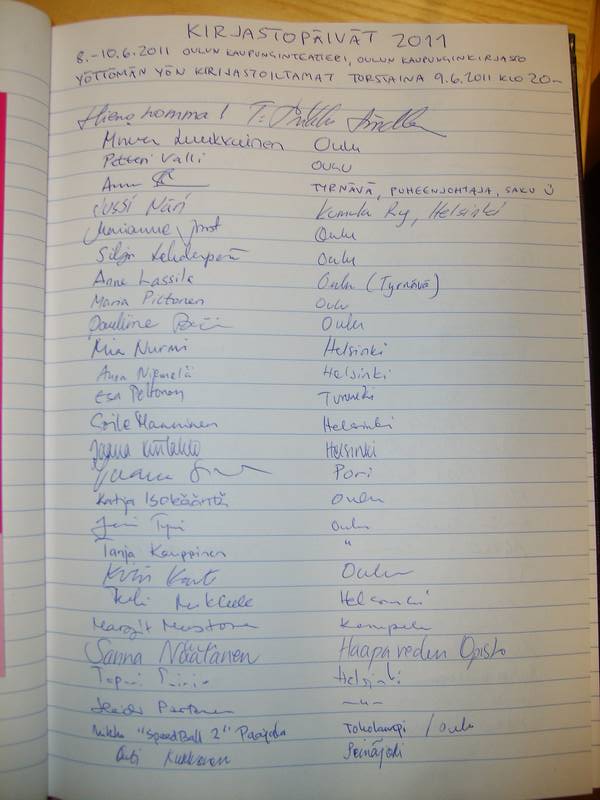 KIRJASTOPÄIVÄT 2011
8.-10.6.2011 OULUN KAUPUNGINTEATTERI, OULUN KAUPUNGINKIRJASTO
YÖTTÖMÄN YÖN KIRJASTOILTAMAT TORSTAINA 9.6.2011 KLO 20-
Hieno homma! T:
Minna Luukkainen Oulu
Petteri Valli OULU
Anna TYRNÄVÄ, PUHEENJOHTAJA, SAKU Ü
Jussi Näri Kumula Ry, Helsinki
Marianne Oulu
Silja Lehdenperä Oulu
Anne Lassila Oulu (Tyrnävä)
Maria Pictonen Oulu
Pauliina Oulu
Mia Nurmi Helsinki
Anna Niemelä Helsinki
Esa Peltonen
Soile Manninen Helsinki
Jaana Helsinki
Pori
Katja Isokääntä Oulu
Oulu
Tanja Kauppinen "
Oulu
Helsinki
Margit Mustonen
Sanna Näätänen Haapaveden Opisto
Helsinki
Heidi Partanen -"-
Mikko "SpeedBall 2" Paajala Toholampi / Oulu
Outi Kukkonen Seinäjoki